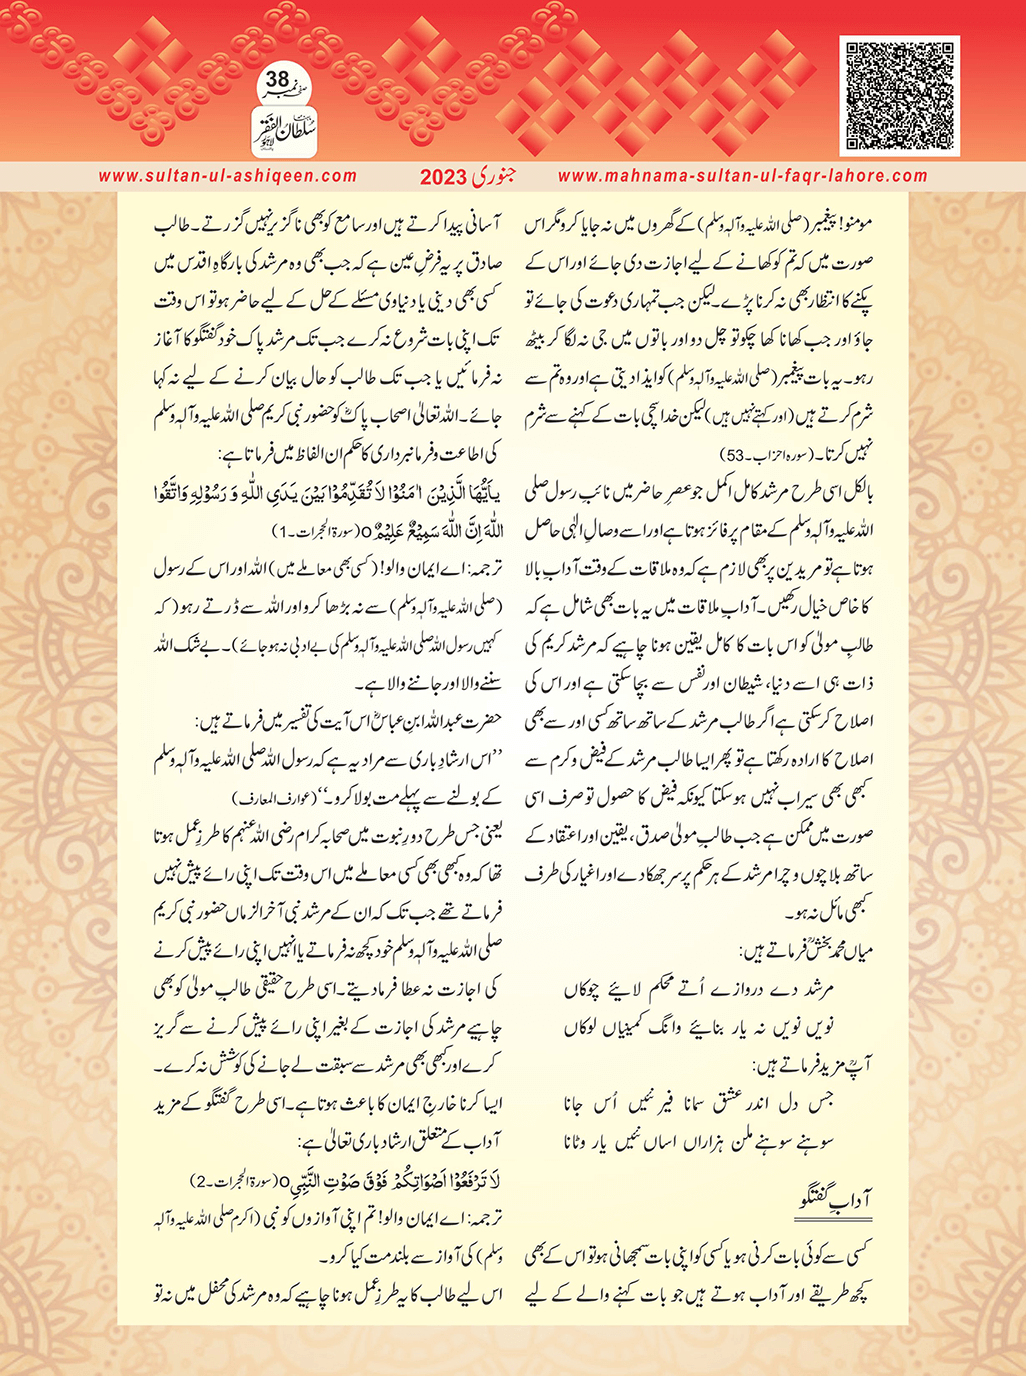 صفحہ نمبر 38
ماہنامہ سلطان الفقر لاہور
www.sultan-ul-ashiqeen.com جنوری 2023 www.mahnama-sultan-ul-faqr-lahore.com
مومنو! پیغمبر (صلی اللہ علیہ وآلہٖ وسلم) کے گھروں میں نہ جایا کرو مگر اس
صورت میں کہ تم کو کھانے کے لیے اجازت دی جائے اور اس کے
پکنے کا انتظار بھی نہ کرنا پڑے۔ لیکن جب تمہاری دعوت کی جائے تو
جاؤ اور جب کھانا کھا چکو تو چل دو اور باتوں میں جی نہ لگا کر بیٹھ
رہو۔ یہ بات پیغمبر (صلی اللہ علیہ وآلہٖ وسلم) کو ایذا دیتی ہے اور وہ تم سے
شرم کرتے ہیں (اور کہتے نہیں ہیں) لیکن خدا سچی بات کے کہنے سے شرم
نہیں کرتا۔ (سورہ احزاب۔53)
بالکل اسی طرح مرشد کامل اکمل جو عصرِ حاضر میں نائبِ رسول صلی
اللہ علیہ وآلہٖ وسلم کے مقام پر فائز ہوتا ہے اور اسے وصالِ الٰہی حاصل
ہوتا ہے تو مریدین پر بھی لازم ہے کہ وہ ملاقات کے وقت آدابِ بالا
کا خاص خیال رکھیں۔ آدابِ ملاقات میں یہ بات بھی شامل ہے کہ
طالبِ مولیٰ کو اس بات کا کامل یقین ہونا چاہیے کہ مرشد کریم کی
ذات ہی اسے دنیا، شیطان اور نفس سے بچا سکتی ہے اور اس کی
اصلاح کر سکتی ہے اگر طالب مرشد کے ساتھ ساتھ کسی اور سے بھی
اصلاح کا ارادہ رکھتا ہے تو پھر ایسا طالب مرشد کے فیض و کرم سے
کبھی بھی سیراب نہیں ہو سکتا کیونکہ فیض کا حصول تو صرف اسی
صورت میں ممکن ہے جب طالبِ مولیٰ صدق، یقین اور اعتقاد کے
ساتھ بلا چوں و چرا مرشد کے ہر حکم پر سر جھکا دے اور اغیار کی طرف
کبھی مائل نہ ہو۔
میاں محمد بخشؒ فرماتے ہیں:
مرشد دے دروازے اُتے محکم لائیے چوکاں
نویں نویں نہ یار بنائیے وانگ کمینیاں لوکاں
آپؒ مزید فرماتے ہیں:
جس دل اندر عشق سمانا فیر نئیں اُس جانا
سوہنے سوہنے ملن ہزاراں اساں نئیں یار وٹانا
آدابِ گفتگو
کسی سے کوئی بات کرنی ہو یا کسی کو اپنی بات سمجھانی ہو تو اس کے بھی
کچھ طریقے اور آداب ہوتے ہیں جو بات کہنے والے کے لیے
آسانی پیدا کرتے ہیں اور سامع کو بھی ناگزیر نہیں گزرتے۔ طالب
صادق پر یہ فرضِ عین ہے کہ جب بھی وہ مرشد کی بارگاہِ اقدس میں
کسی بھی دینی یا دنیاوی مسئلے کے حل کے لیے حاضر ہو تو اس وقت
تک اپنی بات شروع نہ کرے جب تک مرشد پاک خود گفتگو کا آغاز
نہ فرمائیں یا جب تک طالب کو حال بیان کرنے کے لیے نہ کہا
جائے۔ اللہ تعالیٰ اصحاب پاکؓ کو حضور نبی کریم صلی اللہ علیہ وآلہٖ وسلم
کی اطاعت و فرمانبرداری کا حکم ان الفاظ میں فرماتا ہے:
یٰٓاَیُّھَا الَّذِیْنَ اٰمَنُوْا لَا تُقَدِّمُوْا بَیْنَ یَدَیِ اللّٰہِ وَ رَسُوْلِہٖ وَاتَّقُوا
اللّٰہَ اِنَّ اللّٰہَ سَمِیْعٌ عَلِیْمٌ o (سورۃ الحجرات۔1)
ترجمہ: اے ایمان والو! (کسی بھی معاملے میں) اللہ اور اس کے رسول
(صلی اللہ علیہ وآلہٖ وسلم) سے نہ بڑھا کرو اور اللہ سے ڈرتے رہو (کہ
کہیں رسول اللہ صلی اللہ علیہ وآلہٖ وسلم کی بے ادبی نہ ہو جائے)۔ بے شک اللہ
سننے والا اور جاننے والا ہے۔
حضرت عبداللہ ابنِ عباسؓ اس آیت کی تفسیر میں فرماتے ہیں:
’’اس ارشادِ باری سے مراد یہ ہے کہ رسول اللہ صلی اللہ علیہ وآلہٖ وسلم
کے بولنے سے پہلے مت بولا کرو۔‘‘ (عوارف المعارف)
یعنی جس طرح دورِ نبوت میں صحابہ کرام رضی اللہ عنہم کا طرزِ عمل ہوتا
تھا کہ وہ کبھی بھی کسی معاملے میں اس وقت تک اپنی رائے پیش نہیں
فرماتے تھے جب تک کہ ان کے مرشد نبی آخرالزماں حضور نبی کریم
صلی اللہ علیہ وآلہٖ وسلم خود کچھ نہ فرماتے یا انہیں اپنی رائے پیش کرنے
کی اجازت نہ عطا فرما دیتے۔ اسی طرح حقیقی طالبِ مولیٰ کو بھی
چاہیے مرشد کی اجازت کے بغیر اپنی رائے پیش کرنے سے گریز
کرے اور کبھی بھی مرشد سے سبقت لے جانے کی کوشش نہ کرے۔
ایسا کرنا خارجِ ایمان کا باعث ہوتا ہے۔ اسی طرح گفتگو کے مزید
آداب کے متعلق ارشاد باری تعالیٰ ہے:
لَا تَرْفَعُوْٓا اَصْوَاتَکُمْ فَوْقَ صَوْتِ النَّبِیِّ o (سورۃ الحجرات۔2)
ترجمہ: اے ایمان والو! تم اپنی آوازوں کو نبی (اکرم صلی اللہ علیہ وآلہٖ
وسلم) کی آواز سے بلند مت کیا کرو۔
اس لیے طالب کا یہ طرزِ عمل ہونا چاہیے کہ وہ مرشد کی محفل میں نہ تو